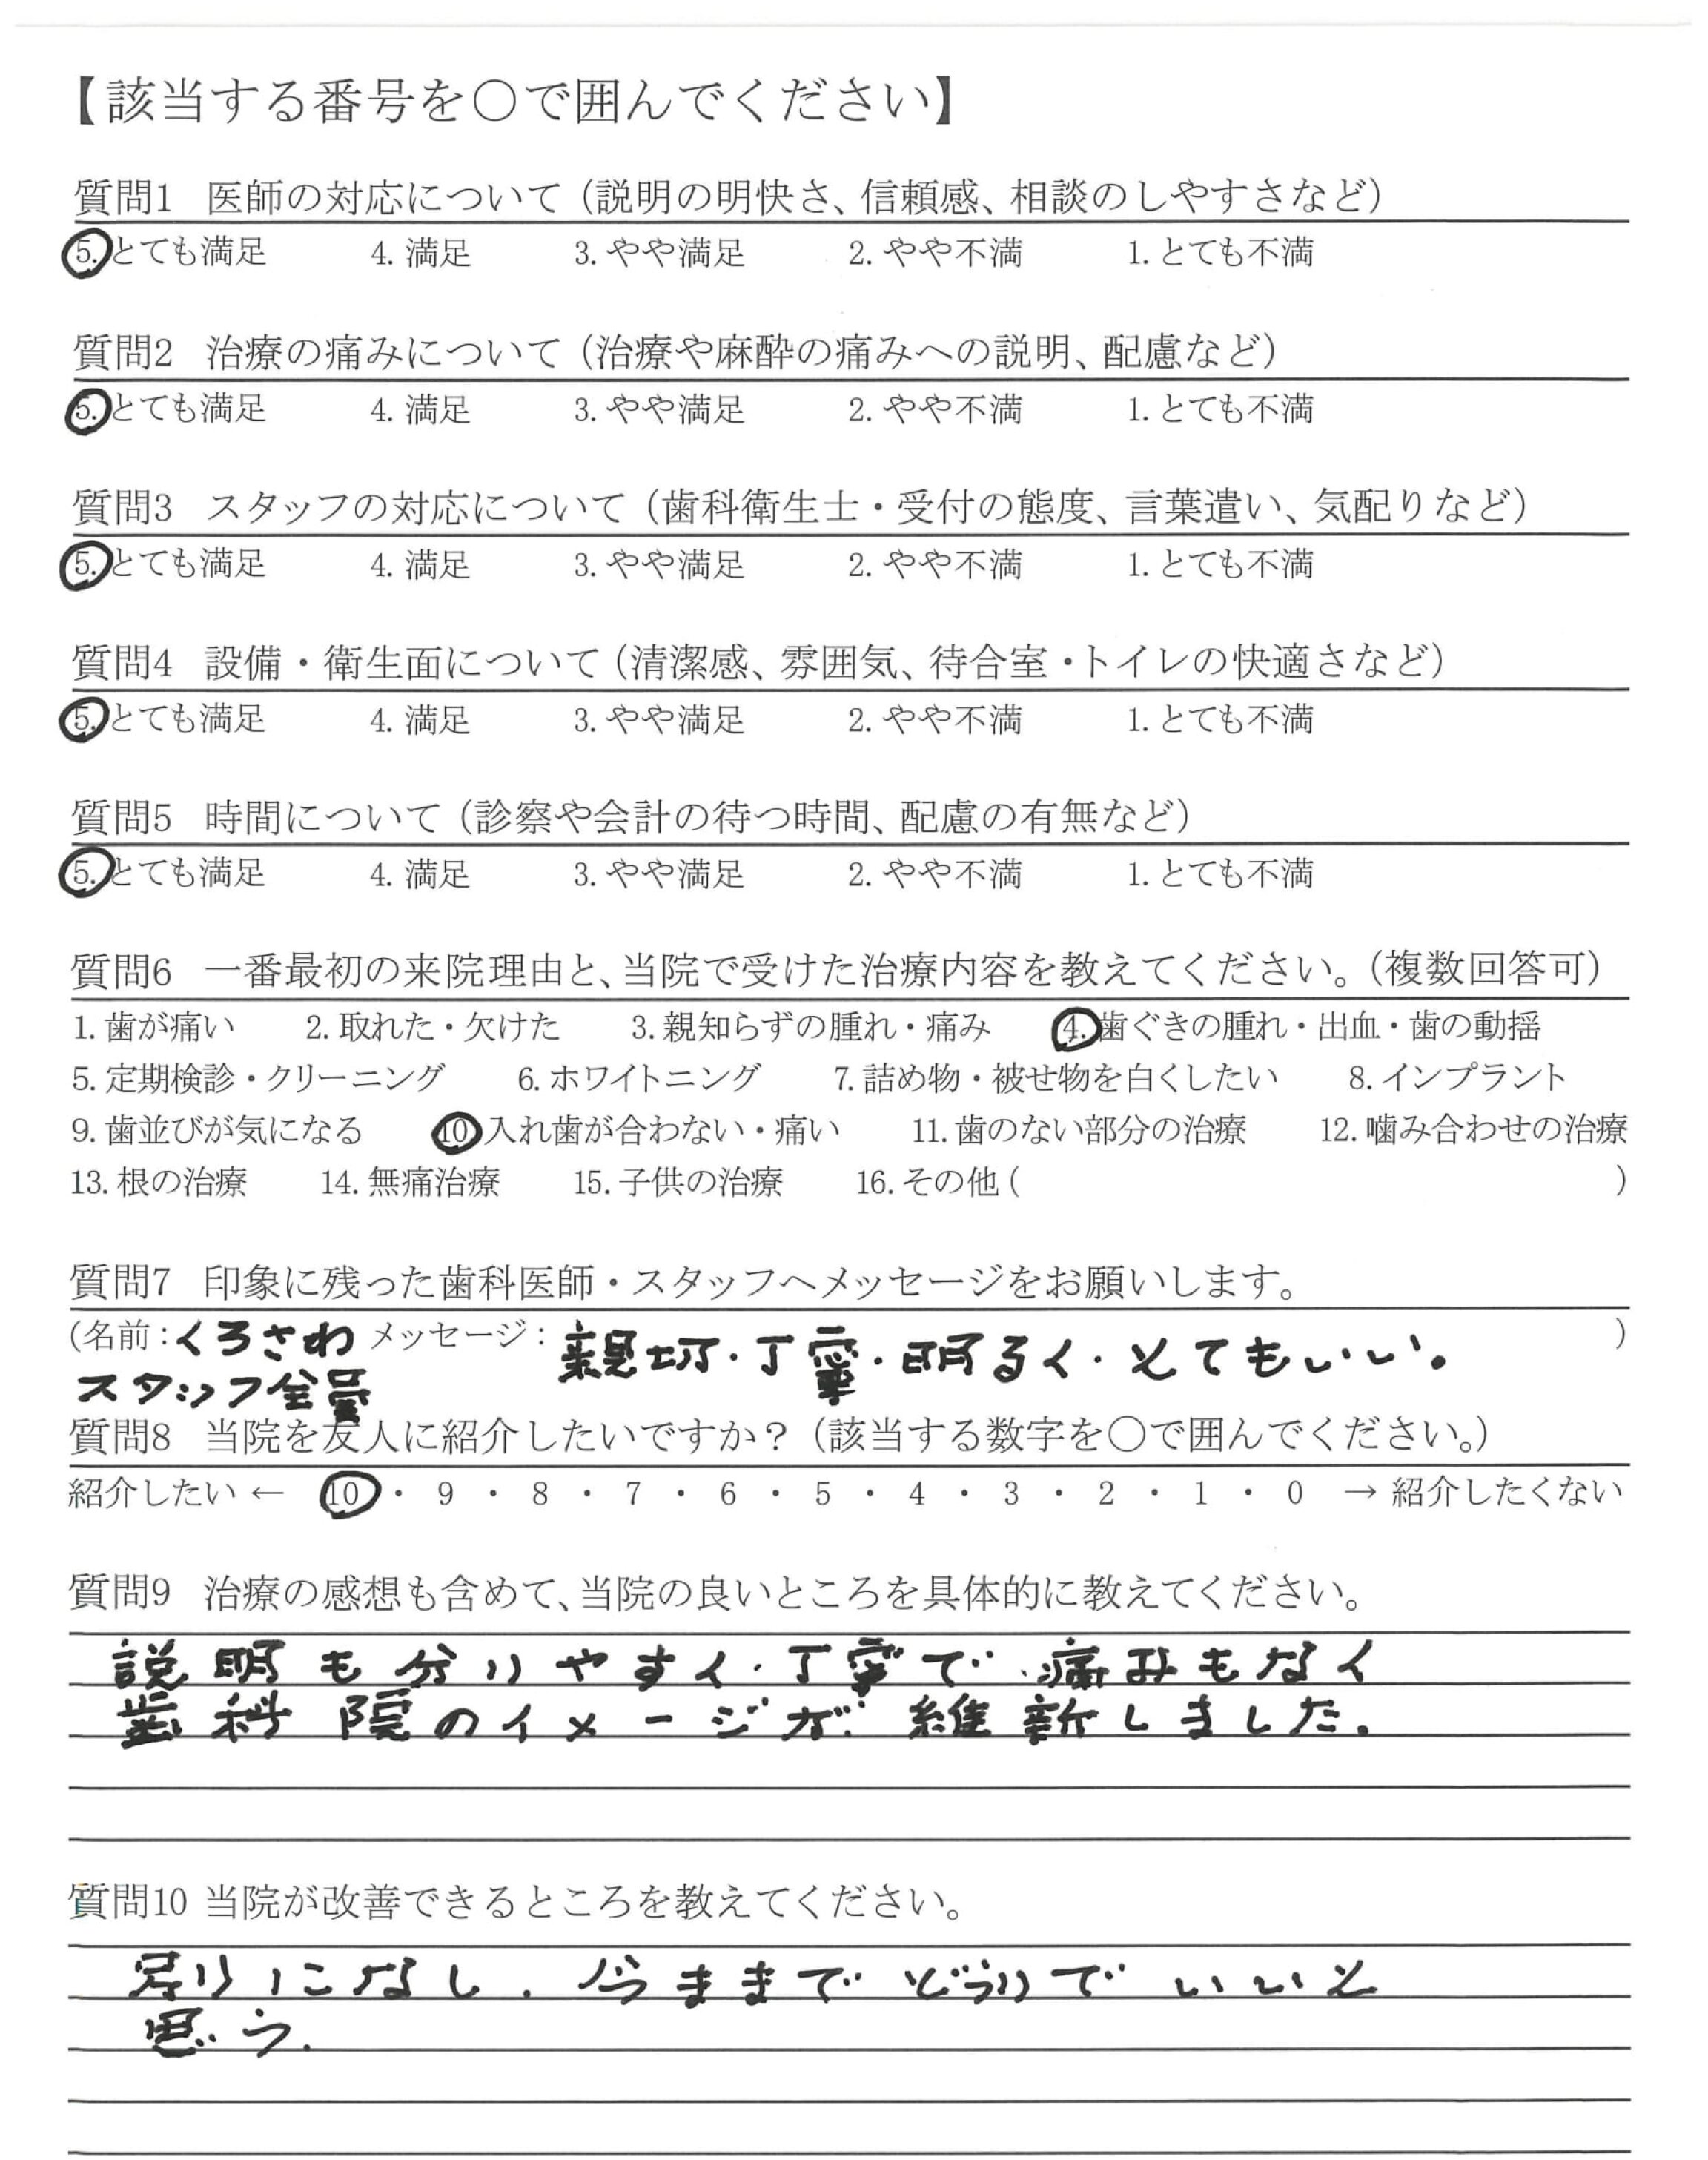 【該当する番号を〇で囲んでください】
質問1 医師の対応について（説明の明快さ、信頼感、相談のしやすさなど）
5. とても満足 4. 満足 3. やや満足 2. やや不満 1. とても不満
質問2 治療の痛みについて（治療や麻酔の痛みへの説明、配慮など）
5. とても満足 4. 満足 3. やや満足 2. やや不満 1. とても不満
質問3 スタッフの対応について（歯科衛生士・受付の態度、言葉遣い、気配りなど）
5. とても満足 4. 満足 3. やや満足 2. やや不満 1. とても不満
質問4 設備・衛生面について（清潔感、雰囲気、待合室・トイレの快適さなど）
5. とても満足 4. 満足 3. やや満足 2. やや不満 1. とても不満
質問5 時間について（診察や会計の待つ時間、配慮の有無など）
5. とても満足 4. 満足 3. やや満足 2. やや不満 1. とても不満
質問6 一番最初の来院理由と、当院で受けた治療内容を教えてください。（複数回答可）
1. 歯が痛い 2. 取れた・欠けた 3. 親知らずの腫れ・痛み 4. 歯ぐきの腫れ・出血・歯の動揺
5. 定期検診・クリーニング 6. ホワイトニング 7. 詰め物・被せ物を白くしたい 8. インプラント
9. 歯並びが気になる 10. 入れ歯が合わない・痛い 11. 歯のない部分の治療 12. 噛み合わせの治療
13. 根の治療 14. 無痛治療 15. 子供の治療 16. その他（ ）
質問7 印象に残った歯科医師・スタッフへメッセージをお願いします。
（名前：くろさわ メッセージ：親切・丁寧・明るく・とてもいい。 ）
スタッフ全員
質問8 当院を友人に紹介したいですか？（該当する数字を〇で囲んでください。）
紹介したい ← 10 ・ 9 ・ 8 ・ 7 ・ 6 ・ 5 ・ 4 ・ 3 ・ 2 ・ 1 ・ 0 → 紹介したくない
質問9 治療の感想も含めて、当院の良いところを具体的に教えてください。
説明も分りやすく・丁寧で・痛みもなく
歯科院のイメージが維新しました。
質問10 当院が改善できるところを教えてください。
別りになし. 今までどうりでいいと
思う.